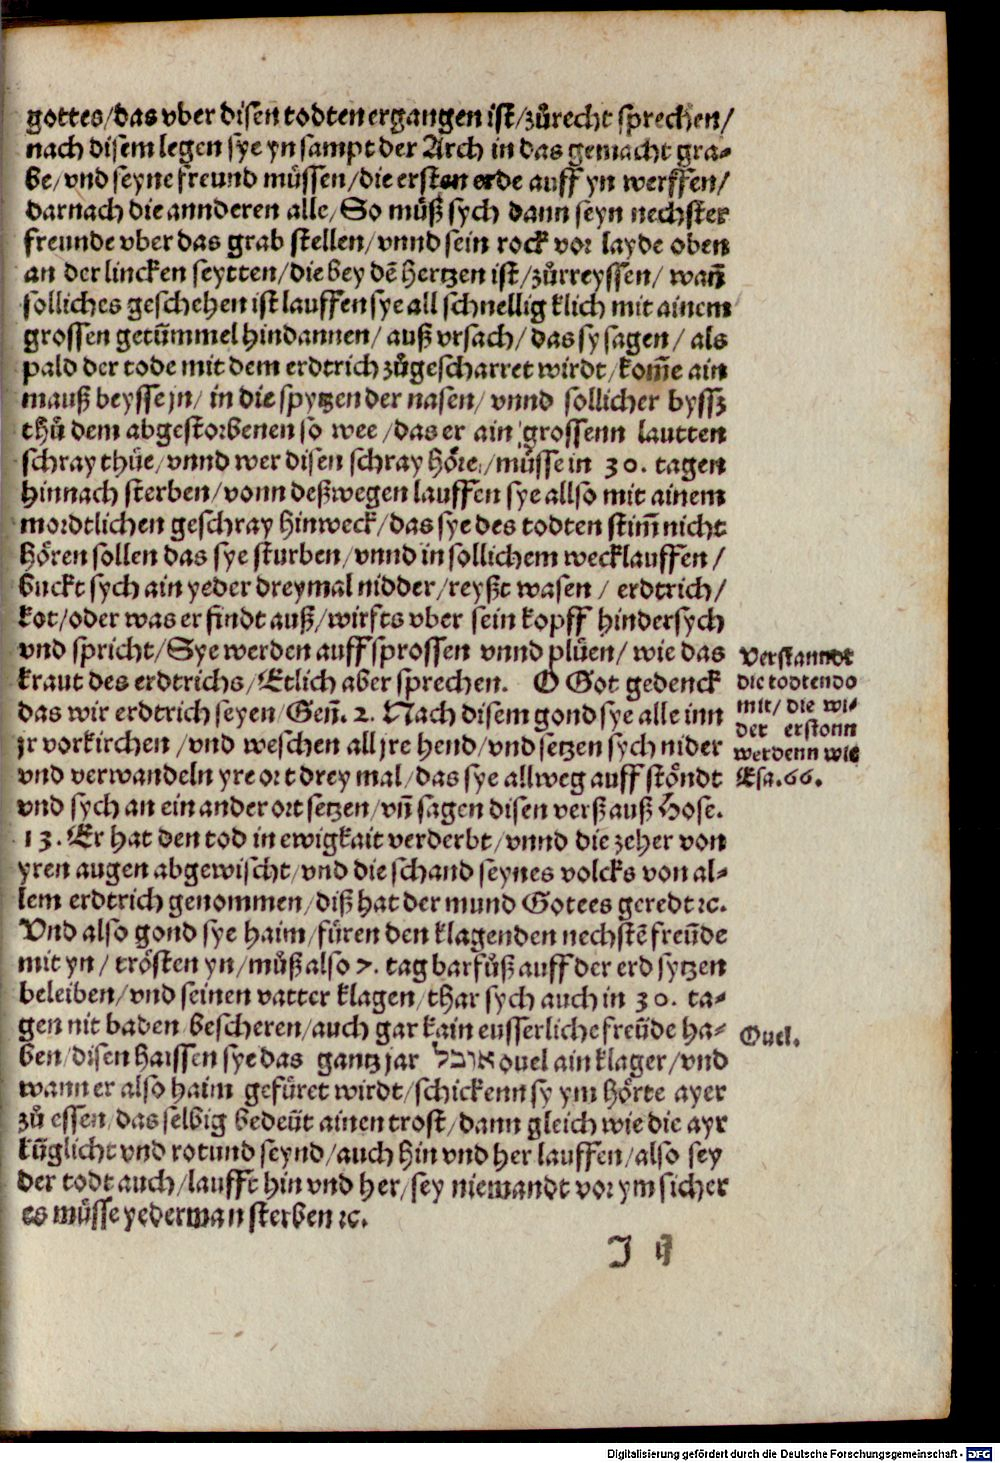 gottes/das vber disen todten ergangen ist/zůrecht sprechen/
nach disem legen sye yn sampt der Arch in das gemacht gra-
be/vnd seyne freund müssen/die ersten erde auff yn werffen/
darnach die annderen alle/So můß sych dann seyn nechster
freunde vber das grab stellen/vnnd sein rock vor layde oben
an der lincken seytten/die bey dē hertzen ist/zůrreyssen/wañ
solliches geschehen ist lauffen sye all schnelligklich mit ainem
grossen getūmmel hindannen/auß vrsach/das sy sagen/als
pald der tode mit dem erdtrich zůgescharret wirdt/kom̄e ain
mauß beysse jn/in die spytzen der nasen/vnnd sollicher byssz
thů dem abgestorbenen so wee/das er ain grossenn lautten
schray thüe/vnnd wer disen schray höre/müsse in 30. tagen
hinnach sterben/vonn deßwegen lauffen sye allso mit ainem
mordtlichen geschray hinweck/das sye des todten stim̄ nicht
hören sollen das sye sturben/vnnd in sollichem wecklauffen/
buckt sych ain yeder dreymal nidder/reyßt wasen/erdtrich/
kot/oder was er findt auß/wirfts vber sein kopff hindersych
vnd spricht/Sye werden auffsprossen vnnd plüen/wie das
kraut des erdtrichs/Etlich aber sprechen. O Got gedenck
das wir erdtrich seyen/Geñ. 2. Nach disem gond sye alle inn
jr vorkirchen/vnd weschen all jre hend/vnd setzen sych nider
vnd verwandeln yre ort drey mal/das sye allweg auffstöndt
vnd sych an ein ander ort setzen/vñ sagen disen verß auß Hose.
13. Er hat den tod in ewigkait verderbt/vnnd die zeher von
yren augen abgewischt/vnd die schand seynes volcks von al-
lem erdtrich genommen/diß hat der mund Gotees geredt ꝛc.
Vnd also gond sye haim/füren den klagenden nechstē freūde
mit yn/trösten yn/můß also 7. tag barfůß auff der erd sytzen
beleiben/vnd seinen vatter klagen/thar sych auch in 30. ta-
gen nit baden bescheren/auch gar kain eusserliche freūde ha-
ben/disen haissen sye das gantz jar אובל ouel ain klager/vnd
wann er also haim gefüret wirdt/schickenn sy ym hörte ayer
zů essen/das selbig bedeüt ainen trost/dann gleich wie die ayr
kūglicht vnd rotund seynd/auch hin vnd her lauffen/also sey
der todt auch/laufft hin vnd her/sey niemandt vor ym sicher
es müsse yederman sterben ꝛc.
J ij
Verstanndt
die todten do
mit/die wi-
der erstonn
werdenn wie
Esa. 66.
Ouel.
Digitalisierung gefördert durch die Deutsche Forschungsgemeinschaft - DFG